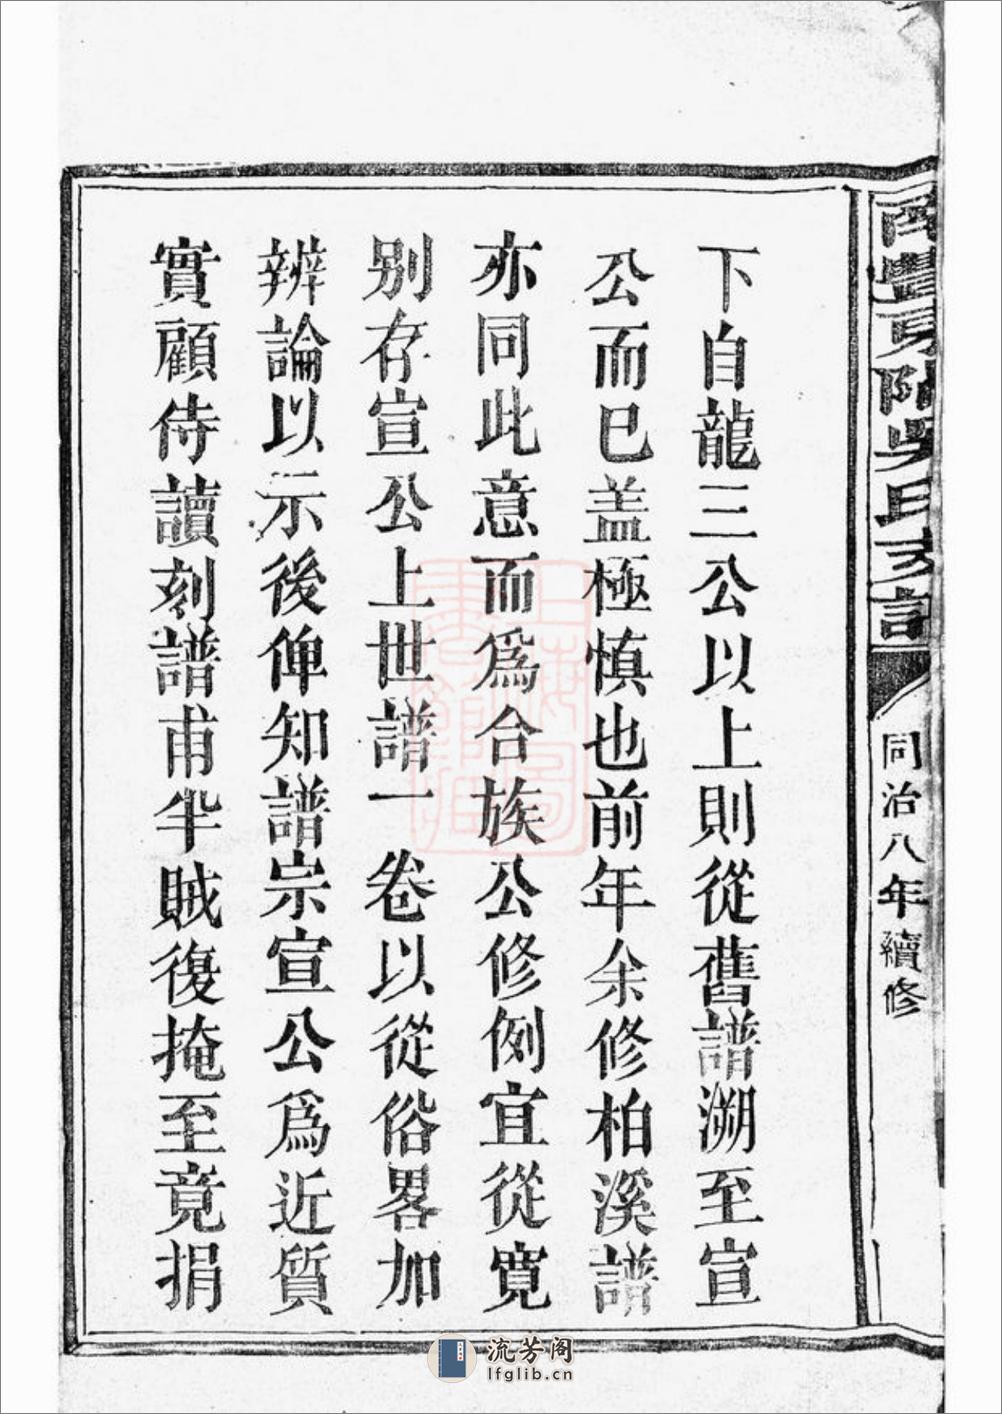 下自龍三公以上則從舊譜溯至宣
公而已盖極慎也前年余修柏溪譜
亦同此意而爲合族公修例宜從寬
别存宣公上世譜一卷以從俗畧加
辨論以示後俾知譜宗宣公爲近質
實顧侍讀刻譜甫半賊復掩至竟捐
同治八年續修
上海圖書館藏
流芳阁
lfglib.cn